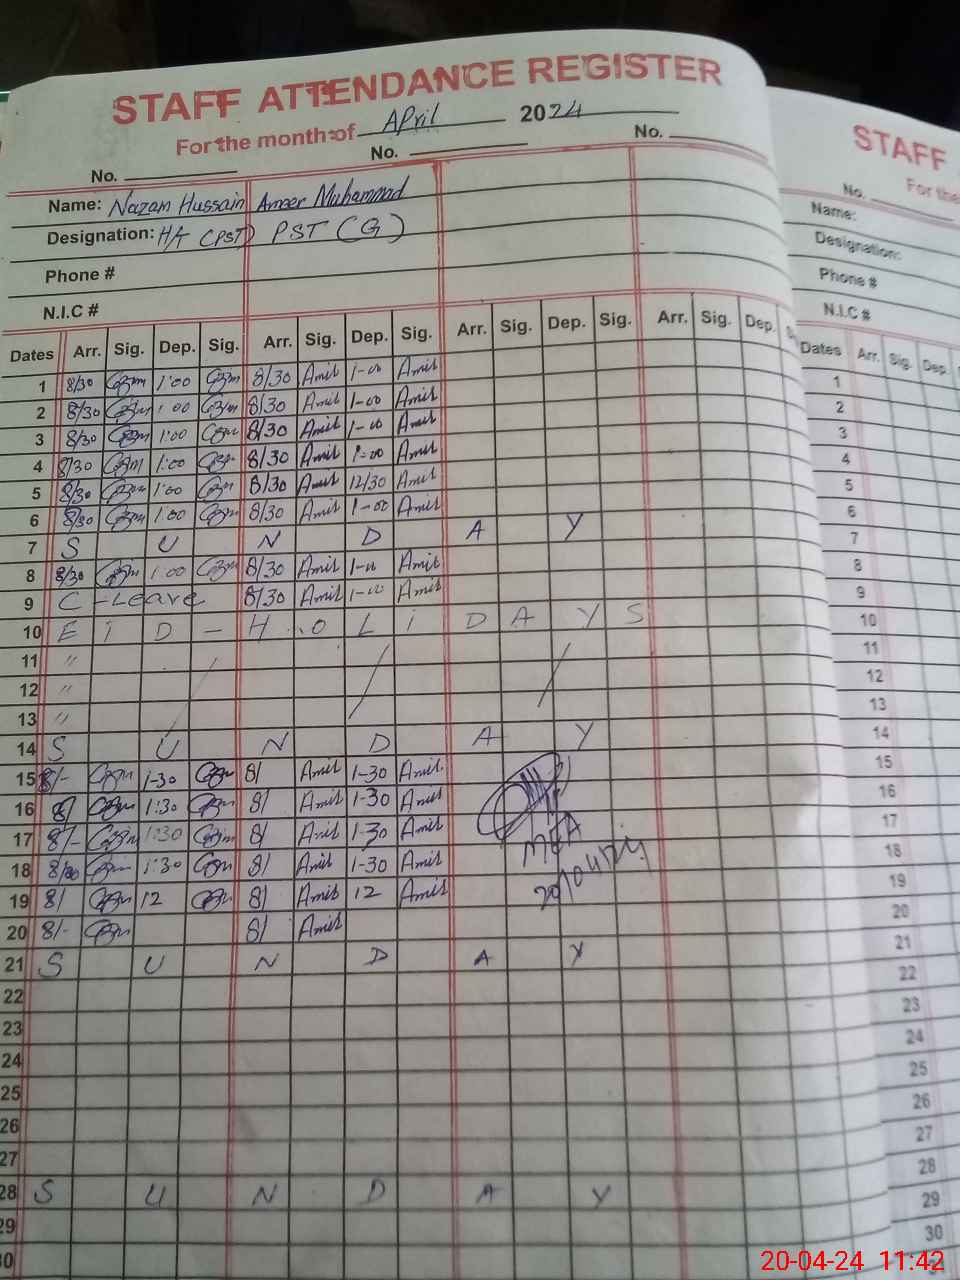 STAFF ATTENDANCE REGISTER
For the month of April 2024
No. No. No.
Name: Nazam Hussain Ameer Muhammad
Designation: HT (PST) PST (G)
Phone #
N.I.C #
Dates Arr. Sig. Dep. Sig. Arr. Sig. Dep. Sig. Arr. Sig. Dep. Sig. Arr. Sig. Dep.
1 8/30 1:00 8/30 Amir 1-00 Amir
2 8/30 1:00 8/30 Amir 1-00 Amir
3 8/30 1:00 8/30 Amir 1-00 Amir
4 8/30 1:00 8/30 Amir 1-00 Amir
5 8/30 1:00 8/30 Amir 12/30 Amir
6 8/30 1:00 8/30 Amir 1-00 Amir
7 S U N D A Y
8 8/30 1:00 8/30 Amir 1-00 Amir
9 C-Leave 8/30 Amir 1-00 Amir
10 E i D - H O L i D A Y S
11 "
12 "
13 "
14 S U N D A Y
15 8/- 1-30 8/ Amir 1-30 Amir
16 8/ 1:30 8/ Amir 1-30 Amir
17 8/- 1:30 8/ Amir 1-30 Amir
18 8/00 1:30 8/ Amir 1-30 Amir
19 8/ 12 8/ Amir 12 Amir
20 8/- 8/ Amir
MEA
20/04/24
21 S U N D A Y
22
23
24
25
26
27
28 S U N D A Y
29
30
STAFF
For the
No.
Name:
Designation:
Phone #
N.I.C #
Dates Arr. Sig. Dep.
1
2
3
4
5
6
7
8
9
10
11
12
13
14
15
16
17
18
19
20
21
22
23
24
25
26
27
28
29
30
20-04-24 11:42